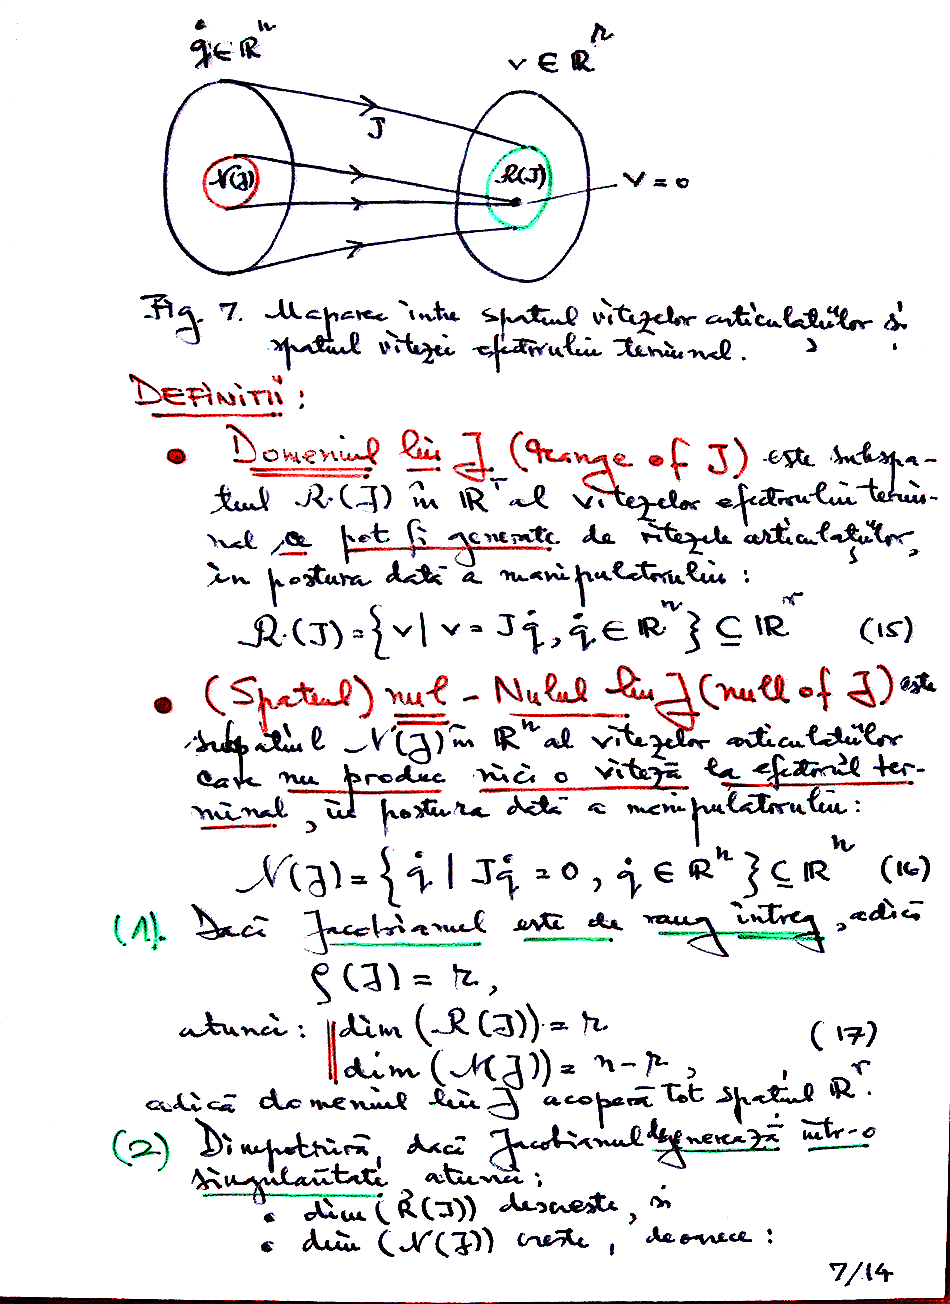 q̇ ∈ ℝⁿ
v ∈ ℝʳ
J
N(J)
R(J)
v = 0
Fig. 7. Maparea între spațiul vitezelor articulațiilor și
spațiul vitezei efectorului terminal.
DEFINIȚII:
• Domeniul lui J (range of J) este subspa-
țiul R(J) în ℝʳ al vitezelor efectorului termi-
nal, ce pot fi generate de vitezele articulațiilor,
în postura dată a manipulatorului:
R(J) = {v | v = Jq̇, q̇ ∈ ℝⁿ} ⊆ ℝʳ (15)
• (Spațiul) nul - Nulul lui J (null of J) este
supațiul N(J) în ℝⁿ al vitezelor articulațiilor
care nu produc nici o viteză la efectorul ter-
minal, în postura dată a manipulatorului:
N(J) = {q̇ | Jq̇ = 0, q̇ ∈ ℝⁿ} ⊆ ℝⁿ (16)
(1). Dacă Jacobianul este de rang întreg, adică
ρ(J) = r,
atunci: dim (R(J)) = r (17)
dim (N(J)) = n - r,
adică domeniul lui J acoperă tot spațiul ℝʳ.
(2) Dimpotrivă, dacă Jacobianul degenerează într-o
singularitate, atunci:
• dim (R(J)) descrește, și
• dim (N(J)) crește, deoarece:
7/14